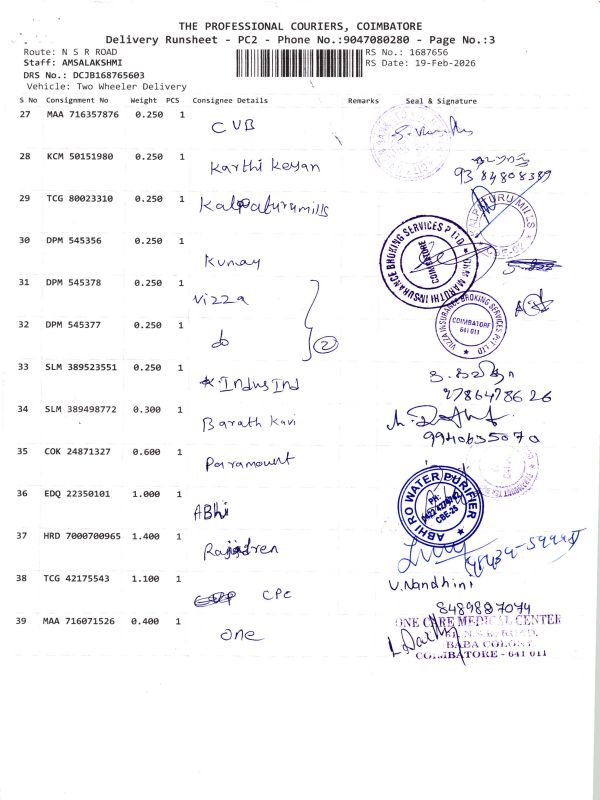 THE PROFESSIONAL COURIERS, COIMBATORE
Delivery Runsheet - PC2 - Phone No.:9047080280 - Page No.:3
Route: N S R ROAD
RS No.: 1687656
Staff: AMSALAKSHMI
RS Date: 19-Feb-2026
DRS No.: DCJB168765603
Vehicle: Two Wheeler Delivery
S No Consignment No Weight PCS Consignee Details Remarks Seal & Signature
27 MAA 716357876 0.250 1 CUB
28 KCM 50151980 0.250 1 Karthi Keyan
9384808389
29 TCG 80023310 0.250 1 Kalpaturumills
KALPATURU MILLS
30 DPM 545356 0.250 1 Kunay
MARUTHI INSURANCE BROKING SERVICES P LTD
COIMBATORE
31 DPM 545378 0.250 1 Vizza
VIZZA INSURANCE BROKING SERVICES PVT LTD
COIMBATORE
641 011
32 DPM 545377 0.250 1 do
2
33 SLM 389523551 0.250 1 IndusInd
2786478626
34 SLM 389498772 0.300 1 Barath Kavi
9940635070
35 COK 24871327 0.600 1 Paramount
36 EDQ 22350101 1.000 1 ABhi
ABHI RO WATER PURIFIER
CBE-25
37 HRD 7000700965 1.400 1
38 TCG 42175543 1.100 1 CPC
V. Nandhini
8489887074
39 MAA 716071526 0.400 1 one
ONE CARE MEDICAL CENTER
N.S.R. ROAD,
BABA COLONY
COIMBATORE - 641 011